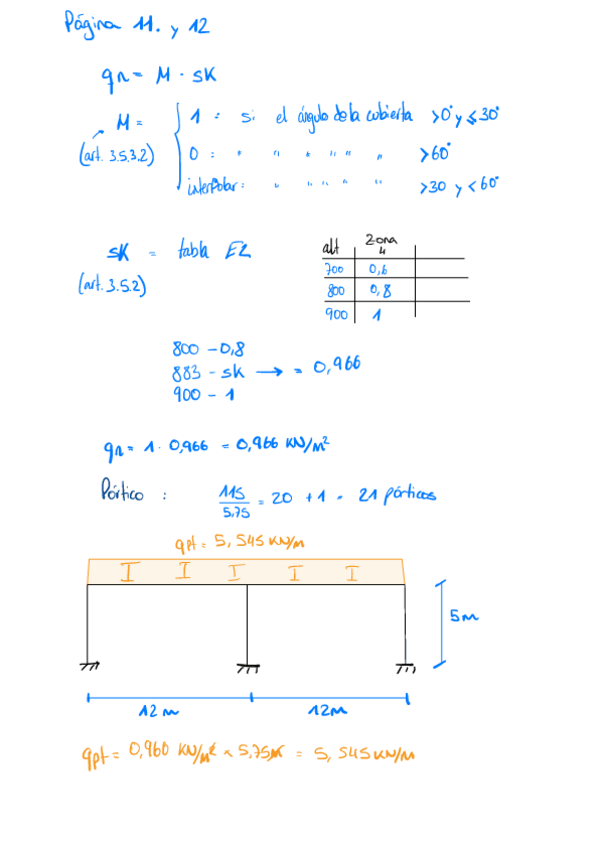 Página 11. y 12
qn = M · sK
M =
(art. 3.5.3.2)
1 : si el ángulo de la cubierta >0° y ≤30°
0 : " " " " " " >60°
interpolar: " " " " " >30 y <60°
sK = tabla E2
(art. 3.5.2)
alt Zona 4
700 0,6
800 0,8
900 1
800 - 0,8
883 - sK → = 0,966
900 - 1
qn = 1 · 0,966 = 0,966 KN/m²
Pórtico : 115/5,75 = 20 + 1 = 21 pórticos
qpt = 5,545 KN/m
I I I I I
5m
12 m 12m
qpt = 0,960 KN/m² x 5,75m = 5,545 KN/m